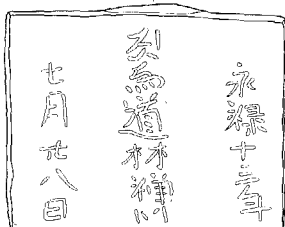 永禄十年
為道林禅
七月廿八日